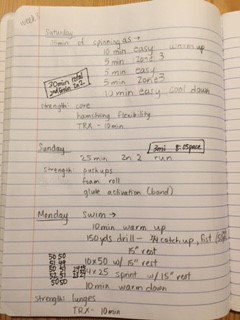 week 1
Saturday
min of spinning as →
10 min easy warm up
5 min zone 3
5 min easy
5 min zone 3
10 min easy cool down
20 min total
strength: core
hamstring flexibility
TRX - 10min
Sunday
3mi 8:05 pace
25 min zn 2 run
strength: pushups
foam roll
glute activation (band)
Monday swim →
10 min warm up
150 yds drill - catch up, fist
15" rest
50 50
10x50 w/ 15" rest
4x25 sprint w/ 15" rest
50 50
10min warm down
strength: lunges
TRX - 10min